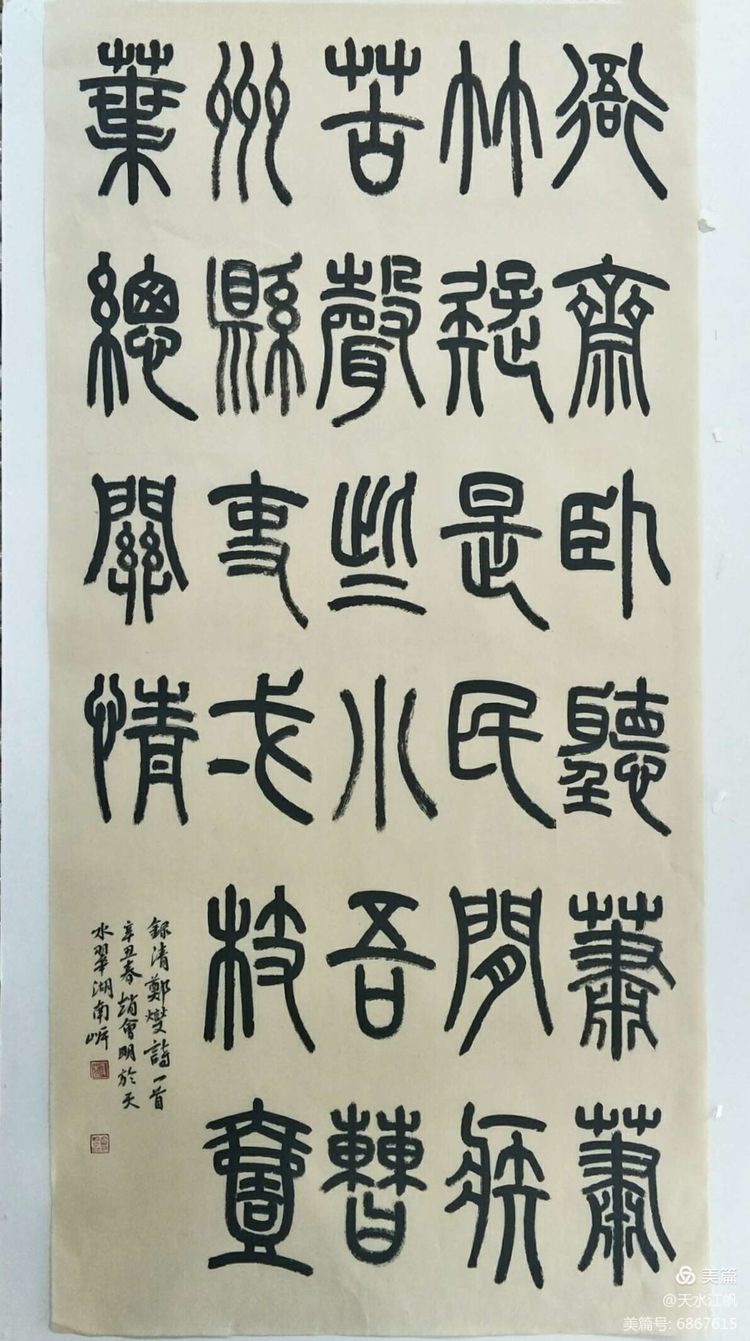 衙齋臥聽蕭蕭
竹疑是民間疾
苦聲些小吾曹
州縣吏弌枝壹
葉總關情
錄清鄭燮詩一首
辛丑春趙會明於天
水翠湖南岸
美篇
@天水江帆
美篇号: 6867615